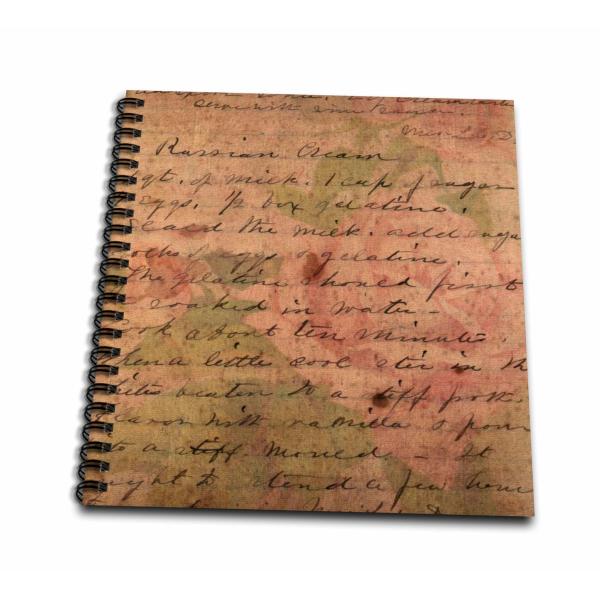 Russian Cream
qt. of milk. 1 cup of sugar
eggs. 1/2 box gelatine.
scald the milk. add suga
yocks of eggs & gelatine.
The gelatine should first
be soaked in water -
Cook about ten minutes.
When a little cool stir in th
whites beaten to a stiff froth
flavor with vanilla & pour
to a stiff mould - It
ought to stand a few hours